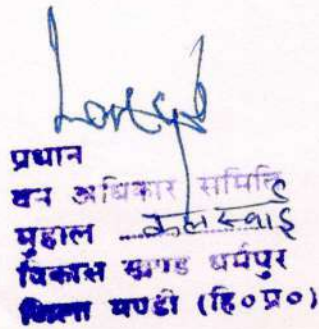 प्रधान
वन अधिकार समिति
मुहाल
विकास खण्ड धर्मपुर
जिला मण्डी (हि०प्र०)